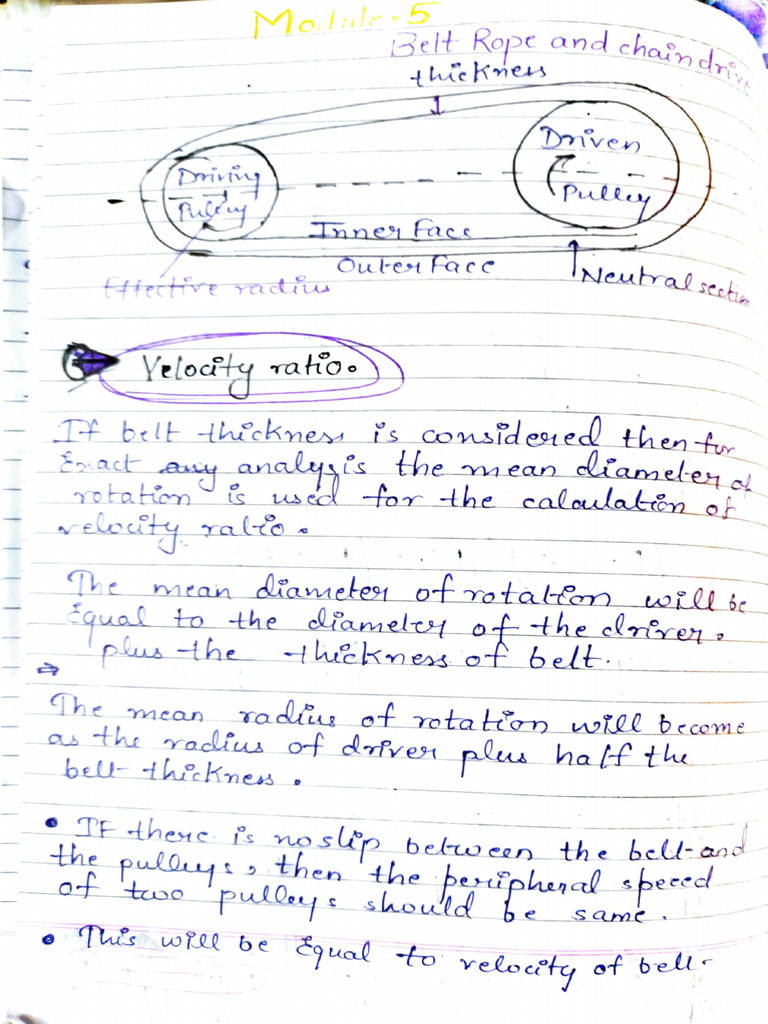 Module-5
Belt Rope and chain drive
thickness
Driven
Pulley
Driving
Pulley
Inner Face
Outer Face
Effective radius
Neutral section
Velocity ratio.
If belt thickness is considered then for
Exact any analysis the mean diameter of
rotation is used for the calculation of
velocity ratio.
The mean diameter of rotation will be
Equal to the diameter of the driver.
plus the thickness of belt.
⇒
The mean radius of rotation will become
as the radius of driver plus half the
belt thickness.
• IF there is no slip between the belt and
the pulleys, then the peripheral speed
of two pulleys should be same.
• This will be Equal to velocity of belt-